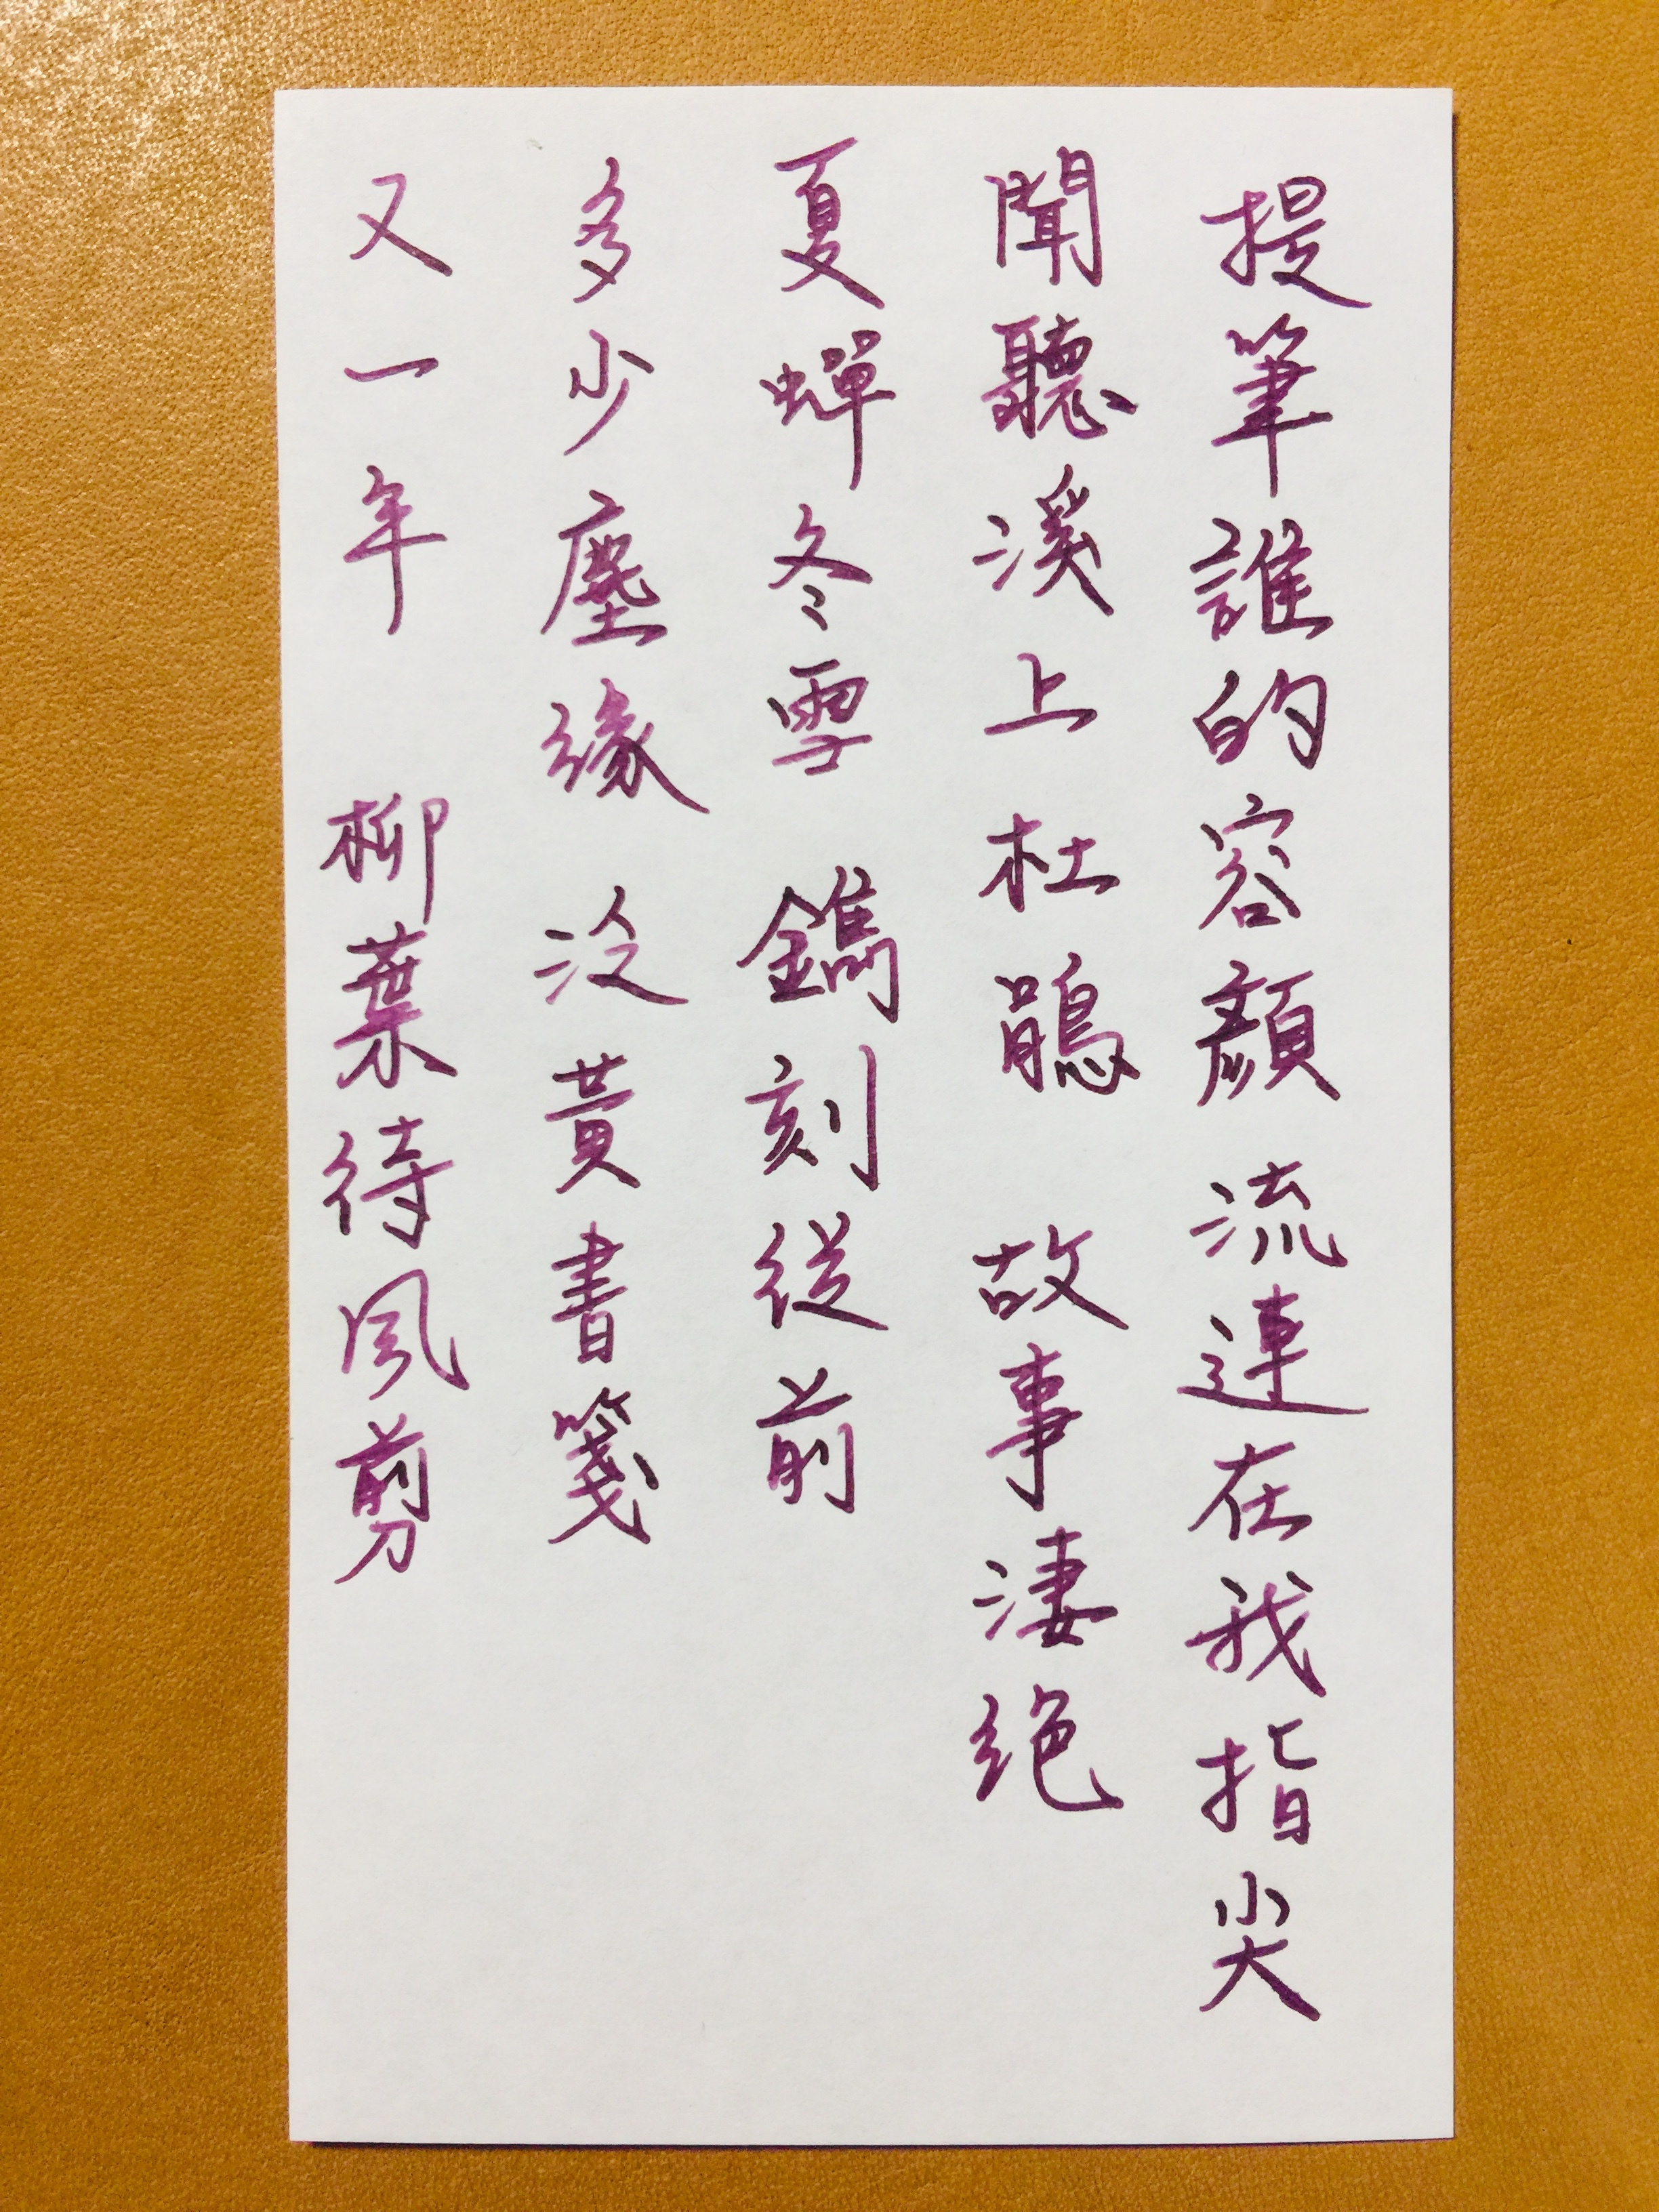 提筆誰的容顏 流連在我指尖
聞聽溪上杜鵑 故事淒絕
夏蟬冬雪 鐫刻從前
多少塵緣 沒黃書箋
又一年 柳葉待風剪